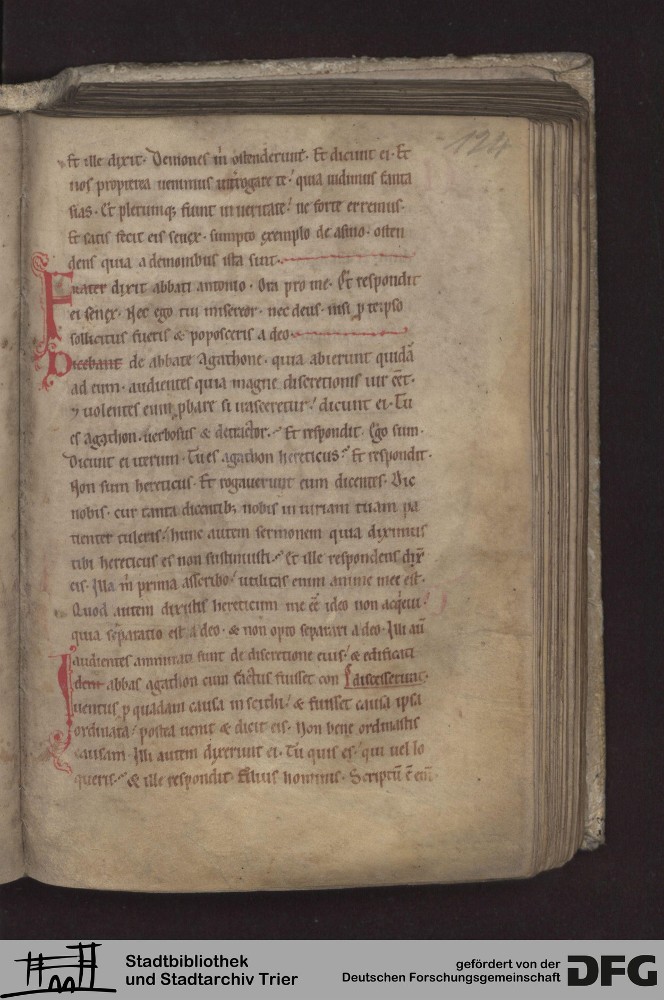 124
Et ille dixit. Demones m̄ ostenderunt. Et dicunt ei. Et
nos propterea uenimus interrogare te. quia uidimus fanta
sias. Et plerumq; fiunt in ueritate. ne forte erremus.
Et satis fecit eis senex. sumpto exemplo de asino. osten
dens quia a demonibus ista sunt.
Frater dixit abbati antonio. Ora pro me. Et respondit
ei senex. Nec ego tui misereor. nec deus. nisi p te ipso
sollicitus fueris & poposceris a deo
Dicebant de abbate Agathone. quia abierunt quidā
ad eum. audientes quia magne discretionis uir eēt.
⁊ uolentes eum pbare si irasceretur. dicunt ei. Tu
es agathon. uerbosus & detractor. Et respondit. Ego sum.
Dicunt ei iterum. Tu es agathon hereticus. Et respondit.
Non sum hereticus. Et rogauerunt eum dicentes. Dic
nobis. cur tanta dicentib; nobis in iuriam tuam pa
tienter tuleris. hunc autem sermonem quia diximus
tibi hereticus es non sustinuisti. Et ille respondens dix̄
eis. Illa m̄ prima asscribo. utilitas enim anime mee est.
Quod autem dixistis hereticum me eē ideo non acq̇eui.
quia separatio est a deo. & non opto separari a deo. Illi aū
audientes ammirati sunt de discretione eius. & edificati
dem abbas agathon cum factus fuisset con discesserunt.
uentus p quadam causa in scithi. & fuisset causa ipsa
ordinata. postea uenit & dicit eis. Non bene ordinastis
causam. Illi autem dixerunt ei. Tu quis es. qui uel lo
queris. & ille respondit. Filius hominis. Scriptū ē em̄
Stadtbibliothek
und Stadtarchiv Trier
gefördert von der
Deutschen Forschungsgemeinschaft
DFG